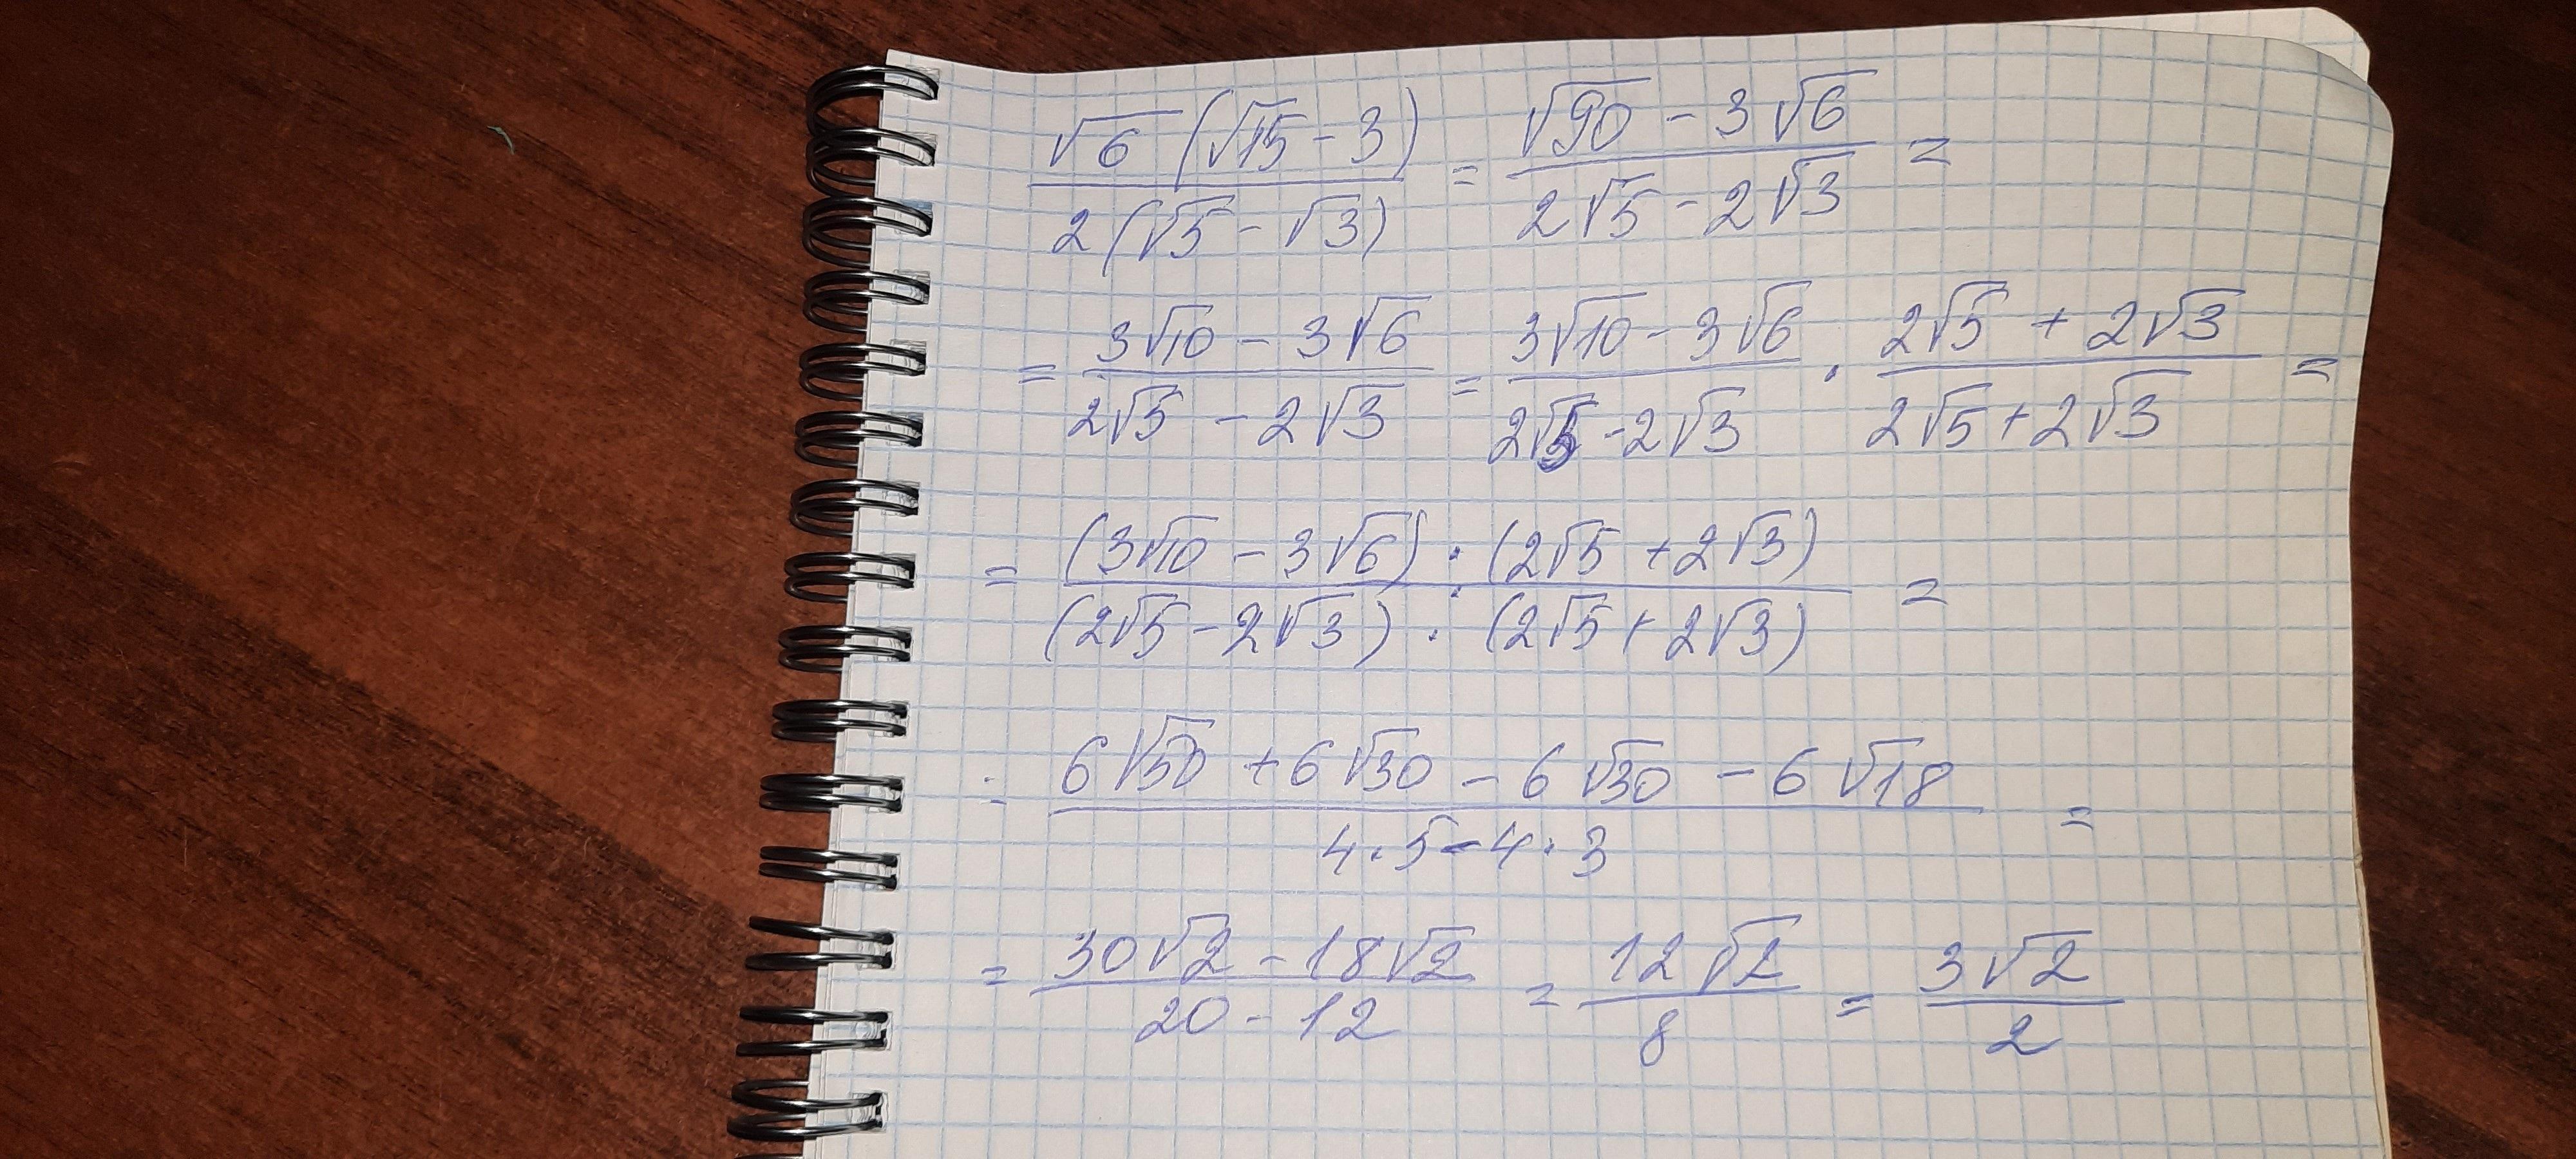 √6 (√15 - 3) / 2(√5 - √3) = √90 - 3√6 / 2√5 - 2√3 =
= 3√10 - 3√6 / 2√5 - 2√3 = 3√10 - 3√6 / 2√5 - 2√3 · 2√5 + 2√3 / 2√5 + 2√3 =
= (3√10 - 3√6) · (2√5 + 2√3) / (2√5 - 2√3) · (2√5 + 2√3) =
= 6√50 + 6√30 - 6√30 - 6√18 / 4·5 - 4·3 =
= 30√2 - 18√2 / 20 - 12 = 12√2 / 8 = 3√2 / 2